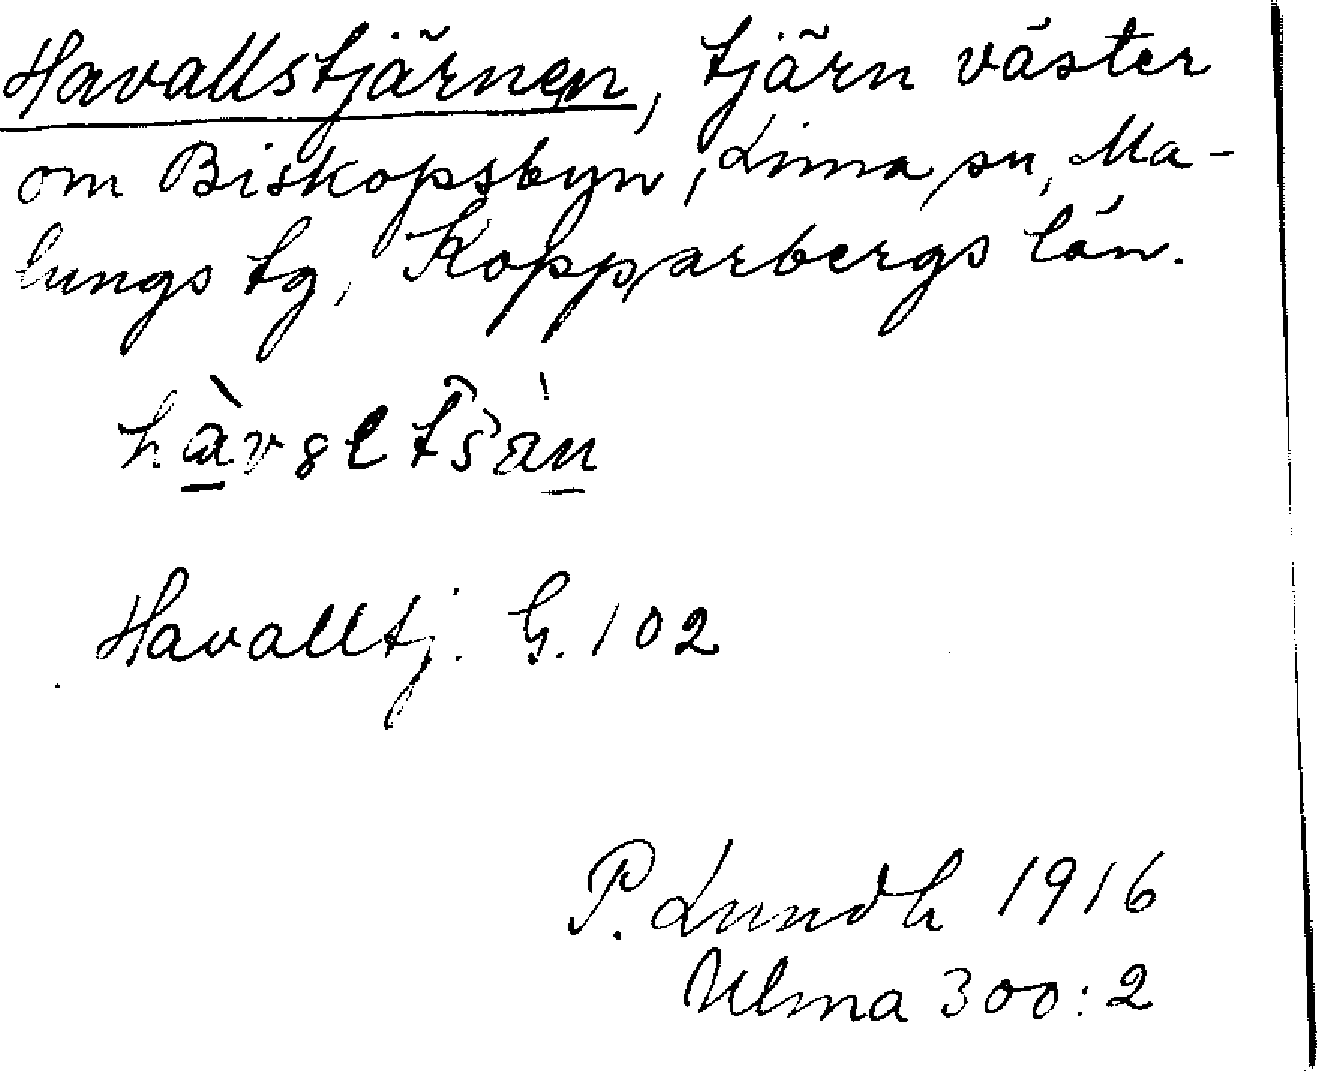 Havallstjärnen, tjärn väster
om Biskopsbyn, Lima sn, Ma-
lungs tg, Kopparbergs län.
Havalltj. G. 102
P. Lundh 1916
Ulma 300:2